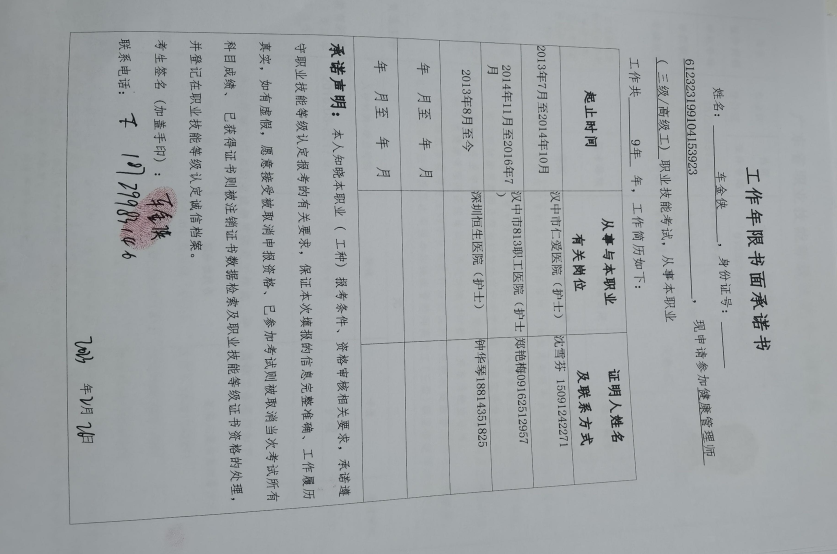 工作年限书面承诺书
姓名： 车金侠 ，身份证号：
612323199104153923 ，现申请参加健康管理师
（三级/高级工）职业技能考试，从事本职业
工作共 9年 年，工作简历如下：
起止时间 从事与本职业有关岗位 证明人姓名及联系方式
2013年7月至2014年10月 汉中市仁爱医院（护士） 沈雪芬 15091242271
2014年11月至2016年7月 汉中市813职工医院（护士） 郑艳梅09162512957
2013年8月至今 深圳恒生医院（护士） 钟华琴18814351825
年 月至 年 月
年 月至 年 月
承诺声明：本人知晓本职业（工种）报考条件、资格审核相关要求，承诺遵
守职业技能等级认定报考的有关要求，保证本次填报的信息完整准确、工作履历
真实，如有虚假，愿意接受被取消申报资格、已参加考试则被取消当次考试所有
科目成绩、已获得证书则被注销证书数据检索及职业技能等级证书资格的处理，
并登记在职业技能等级认定诚信档案。
考生签名（加盖手印）：车金侠
联系电话：
2023 年2月26日